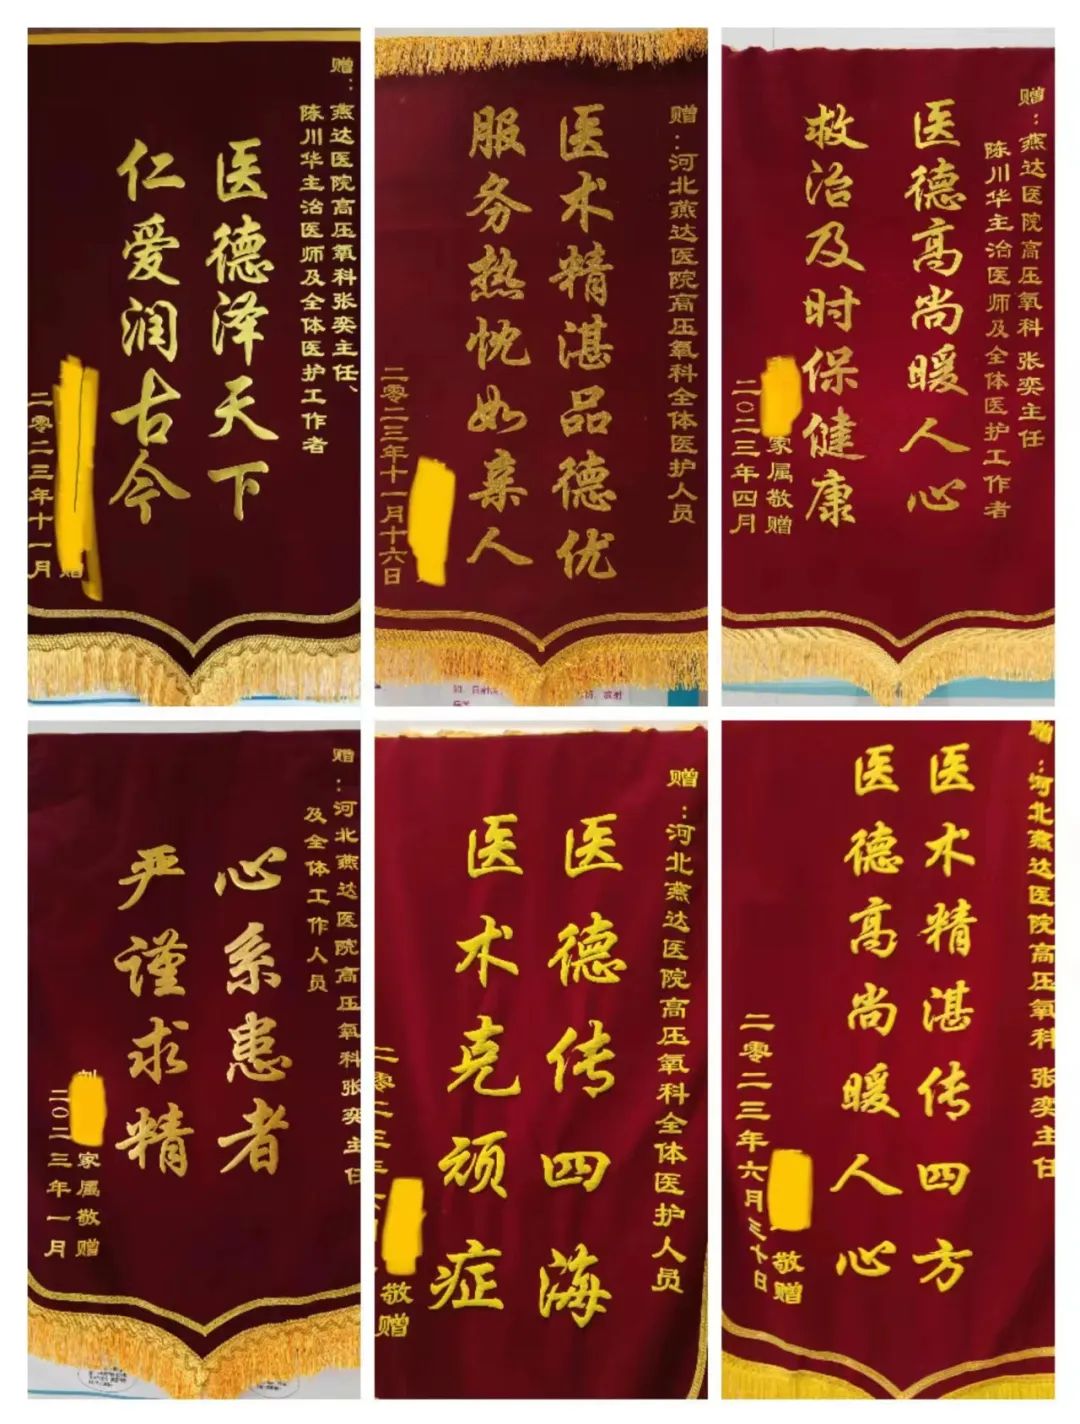 赠：燕达医院高压氧科张奕主任、
陈川华主治医师及全体医护工作者
医德泽天下
仁爱润古今
赠
二零二三年十一月
赠：河北燕达医院高压氧科全体医护人员
医术精湛品德优
服务热忱如亲人
二零二三年十一月十六日
赠：燕达医院高压氧科 张奕主任
陈川华主治医师及全体医护工作者
医德高尚暖人心
救治及时保健康
家属敬赠
二〇二三年四月
赠：河北燕达医院高压氧科张奕主任
及全体工作人员
心系患者
严谨求精
刘
家属敬赠
二〇二三年一月
赠：河北燕达医院高压氧科全体医护人员
医德传四海
医术克顽症
敬赠
二零二三年
赠：河北燕达医院高压氧科 张奕主任
医术精湛传四方
医德高尚暖人心
敬赠
二零二三年六月三十日